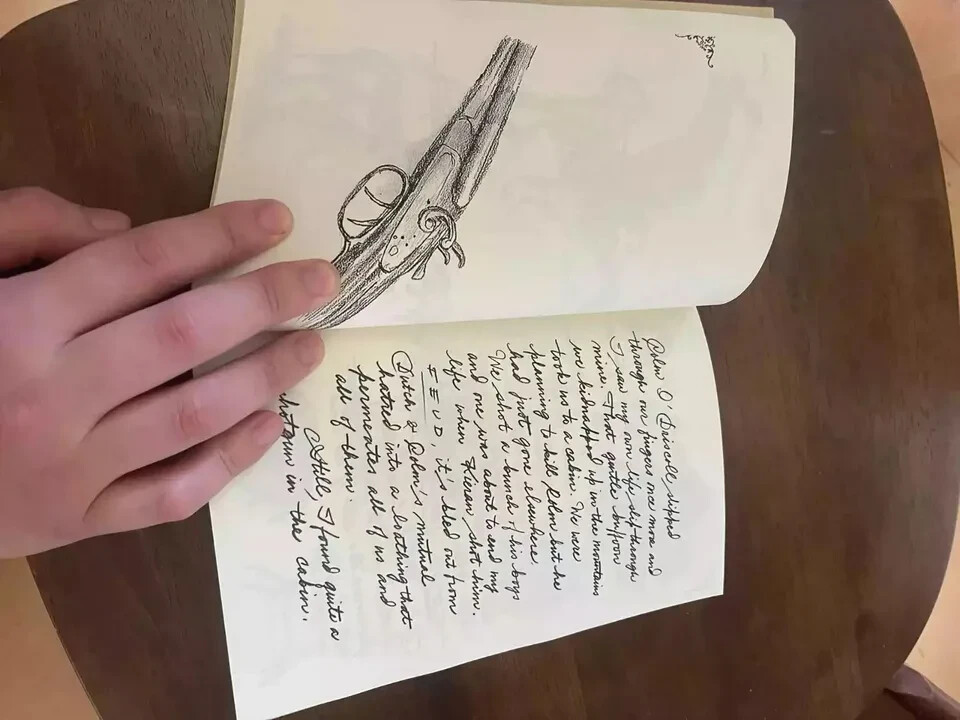 Colm O'Driscoll slipped
through our fingers once more and
I saw my own life slip through
mine. That quitte buffoon
we kidnapped up in the mountains
took us to a cabin. We were
planning to kill Colm but he
had just gone elsewhere.
We shot a bunch of his boys
and one was about to end my
life when Kieran shot him.
FEUD, it's bled out from
Dutch & Colm's mutual
hatred into a loathing that
permeates all of us and
all of them.
Still, I found quite a
shotgun in the cabin.